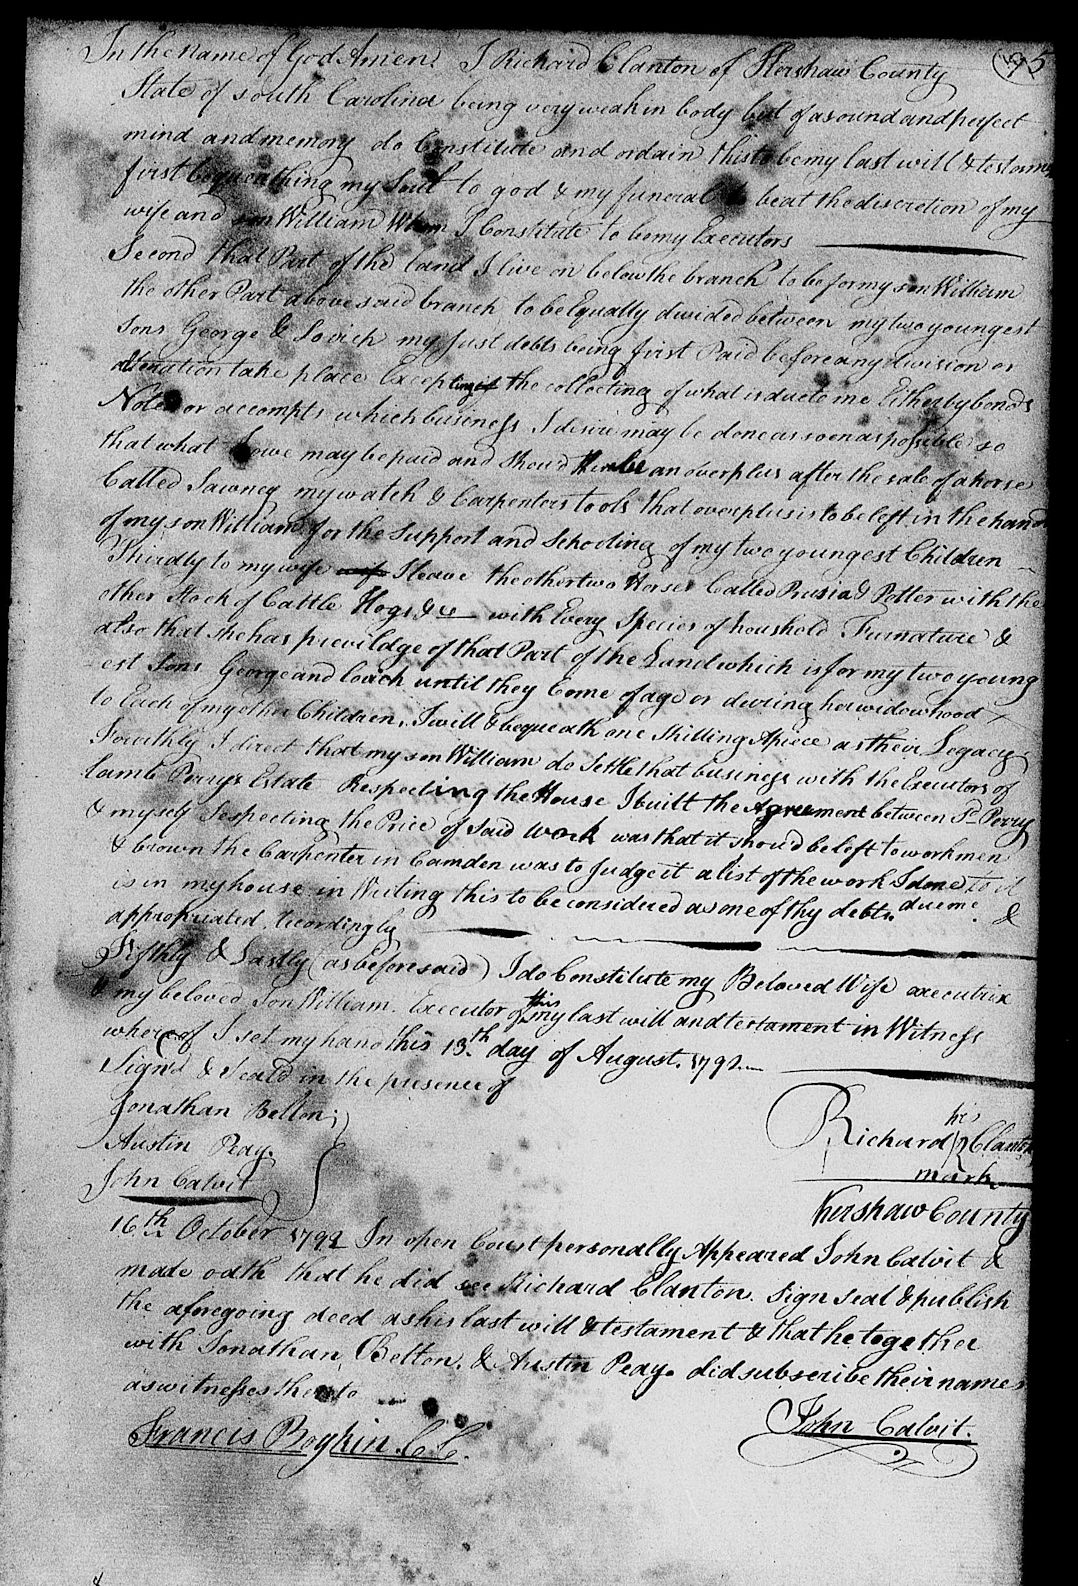 95
In the Name of God Amen. I Richard Clanton of Kershaw County
State of south Carolina being very weak in body but of a sound and perfect
mind and memory do Constitute and ordain this to be my last will & testam
first bequeathing my Soul to god & my funeral to be at the discretion of my
wife and son William Whom I Constitute to be my Executors
Second that Part of the land I live on below the branch to be for my son William
the other Part above said branch to be Equally divided between my two youngest
Sons George & Lovick my Just debts being first Paid before any division or
alienation take place Excepting the collecting of what is due to me Either by bonds
Notes or accompts which business I desire may be done as soon as possible so
that what I owe may be paid and shou'd there be an overplus after the sale of a horse
Called Sawney my watch & Carpenters tools that overplus is to be left in the hand
of my son William for the Support and Schooling of my two youngest Children
Thirdly to my wife I leave the other two Horses Called Prusia & Potter with the
other Stock of Cattle Hogs &c with Every Species of houshold Furnature &
also that she has previldge of that Part of the Land which is for my two young
est Sons George and Lovick until they Come of age or during her widowhood
to Each of my other Children, I will & bequeath one Shilling Apiece as their Legacy
Fourthly I direct that my son William do Settle that business with the Executors of
Lamb Perrys Estate Respecting the House I built the Agreement between Sd Perry
& myself Respecting the Price of Said work was that it shou'd be left to workmen
& brown the Carpenter in Camden was to Judge it a list of the work I done to it
is in my house in Writing this to be considered as one of thy debts due me &
appropriated Accordingly
Fifthly & Lastly (as before said) I do Constitute my Beloved Wife executrix
& my beloved Son William Executor of this my last will and testament in Witness
whereof I set my hand this 13th day of August 1792
Sign'd & Seal'd in the presence of
Jonathan Belton
Austin Peay
John Calvit
his
Richard Clanton
mark
Kershaw County
16th October 1792 In open Court personally Appeared John Calvit &
made oath that he did see Richard Clanton sign seal & publish
the aforegoing deed as his last will & testament & that he together
with Jonathan Belton, & Austin Peay did subscribe their names
as witnesses thereto
Francis Boykin C C.
John Calvit.